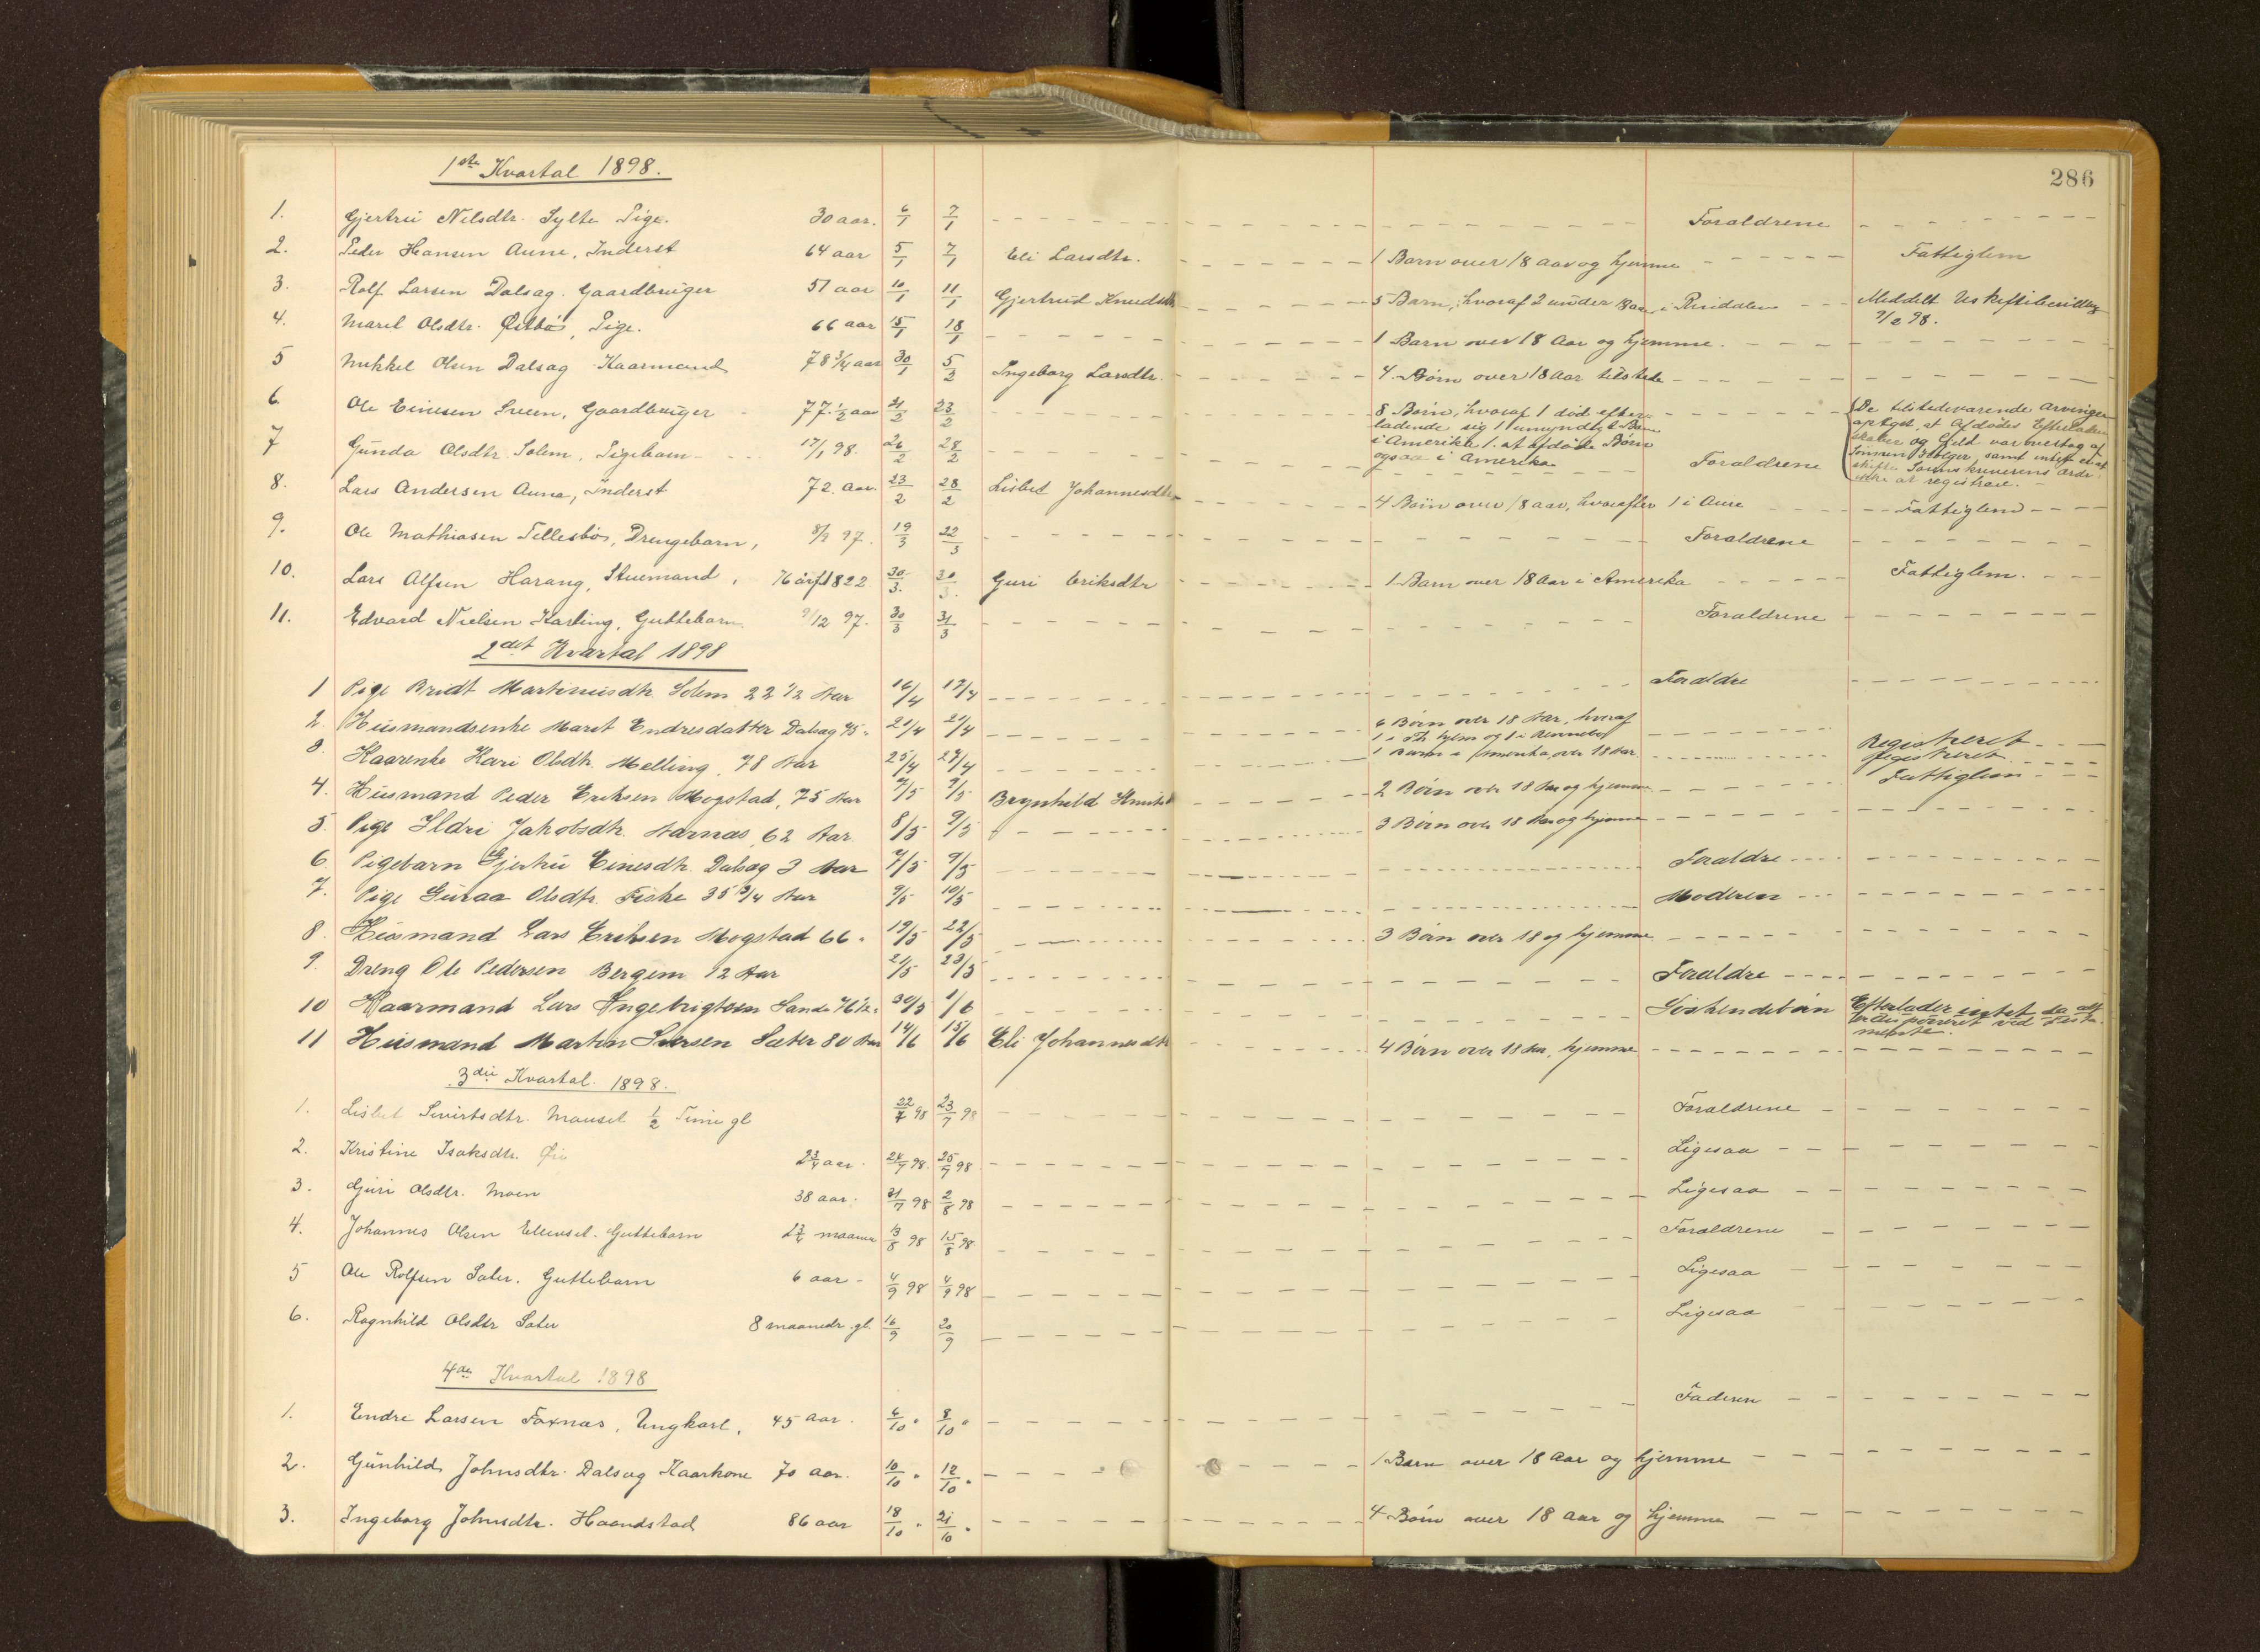 286
1ste Kvartal 1898.
1. Gjertru Nilsdtr. Sylte Pige. 30 aar. 6/1 7/1 Foraldrene
2. Peder Hansen Aune, Inderst 64 aar 5/1 7/1 Eli Larsdtr. 1 Barn over 18 aar og hjemme Fattiglem
3. Rolf Larsen Dalsag. Gaardbruger 51 aar 10/1 11/1 Gjertrud Knudsdtr 5 Barn, hvoraf 2 under 18 aar i Rinddalen Meddelt Uskiftebevilling
9/2 98.
4. Maril Olsdtr. Østbø, Pige. 66 aar 15/1 18/1 1 Barn over 18 Aar og hjemme.
5 Mikkel Olsen Dalsag Kaarmand 78 3/4 aar 30/1 5/2 Ingeborg Larsdtr. 4 Børn over 18 Aar tilstede
6. Ole Einesen Sveen, Gaardbruger 77 1/2 aar 21/2 23/2 8 Børn, hvoraf 1 død efter-
ladende sig 1 umyndigt Barn
i Amerika 1. af afdøde Børn
ogsaa i Amerika
De tilstedevarende Arvinger
opligst, at Afdødes Efterladen-
skaber og Gjeld var overtag af
Sønnen Holger, samt
ikke at registrere.
7 Gunda Olsdtr. Solem, Pigebarn 17/1 98. 26/2 28/2 Foraldrene
8. Lars Andersen Aune, Inderst 72 Aar. 23/2 28/2 Lisbet Johannesdtr 4 Børn over 18 aar, hvorafter 1 i Aure Fattiglem
9. Ole Mathiasen Tellesbø, Drengebarn, 8/9 97. 19/3 22/3 Foraldrene
10. Lars Alfsen Harang, Stuemand, 76 år f 1822 30/3. 30/3. Guri Eriksdtr 1 Barn over 18 Aar i Amerika Fattiglem.
11. Edvard Nielsen Karling, Guttebarn. 9/12 97. 30/3 31/3 Foraldrene
2det Kvartal 1898
1 Pige Bridt Martinusdtr. Solem 22 1/2 Aar 16/4 17/4 Foraldre
2. Husmandsenke Marit Endresdatter Dalsag 75 " 21/4 21/4 6 Børn over 18 Aar, hvoraf
1 i Th. hjem og 1 i Rennebo Registreret
3. Kaarenke Kari Olsdtr. Melling, 78 Aar 25/4 27/4 1 Barn i Amerika, over 18 Aar Registreret
4. Husmand Peder Eriksen Mogstad, 75 Aar 7/5 9/5 Brynhild 2 Børn over 18 Aar og hjemme Fattiglem
5. Pige Ildri Jakobsdtr. Aarnas, 62 Aar. 8/5 9/5 3 Børn over 18 Aar og hjemme
6. Pigebarn Gjertru Einesdtr. Dalsag 3 Aar 7/5 9/5 Foraldre
7. Pige Guraa Olsdtr. Fiske 35 3/4 Aar 9/5 10/5 Moderen
8. Husmand Lars Eriksen Mogstad 66 " 19/5 22/5 3 Børn over 18 og hjemme
9. Dreng Ole Pedersen Bergem 12 Aar 21/5 23/5 Foraldre
10 Kaarmand Lars Ingebrigtsen Sande 76 1/2 " 30/5 1/6 Søskendebørn Efterlader intet da alt
er disponeret ved Testa-
mente.
11 Husmand Marten Iversen Sæter 80 Aar 14/6 15/6 Eli Johannesdtr 4 Børn over 18 Aar, hjemme
3die Kvartal. 1898.
1. Lisbet Sivertsdtr. Mauset 1/2 Time gl 22/7 98 23/7 98 Foraldrene
2. Kristine Isaksdtr. Øie 2 3/4 aar. 24/7 98. 25/7 98 Ligesaa
3. Guri Olsdtr. Moen 38 aar. 31/7 98 2/8 98 Ligesaa
4. Johannes Olsen Ellevset. Guttebarn 2 3/4 maaner 13/8 98 15/8 98. Foraldrene
5 Ole Rolfsen Sæter. Guttebarn 6 aar - 4/9 98 4/9 98 Ligesaa
6. Ragnhild Olsdtr Sæter 8 maaneder. gl. 16/9 20/9 Ligesaa
4de Kvartal 1898
1. Endre Larsen Foxnas, Ungkarl, 45 aar. 6/10 " 8/10 " Faderen
2. Gunhild Johnsdtr. Dalsag Kaarkone 70 aar. 10/10 " 12/10 " 1 Barn over 18 Aar og hjemme
3. Ingeborg Johnsdtr. Haandstad 86 aar 18/10 " 21/10 " 4 Børn over 18 aar og hjemme